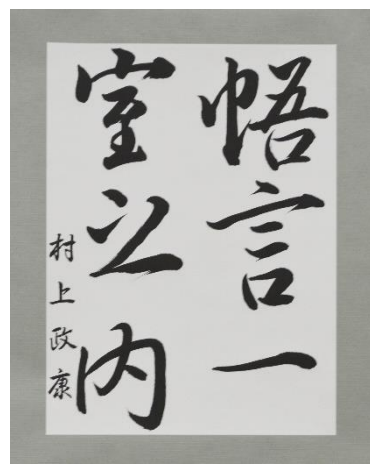 悟言一
室之内
村上政康